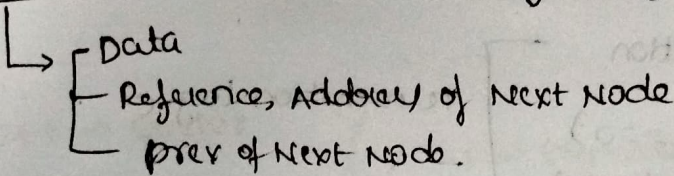 Data
Reference, Address of Next Node
prev of Next Node.